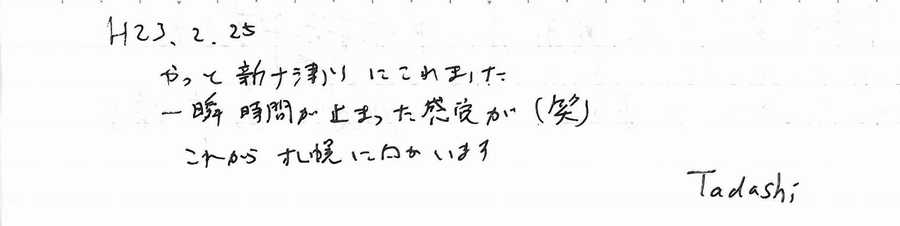 H23.2.25
やっと新十津川にこれました
一瞬時間が止まった感覚が(笑)
これから札幌に向かいます
Tadashi